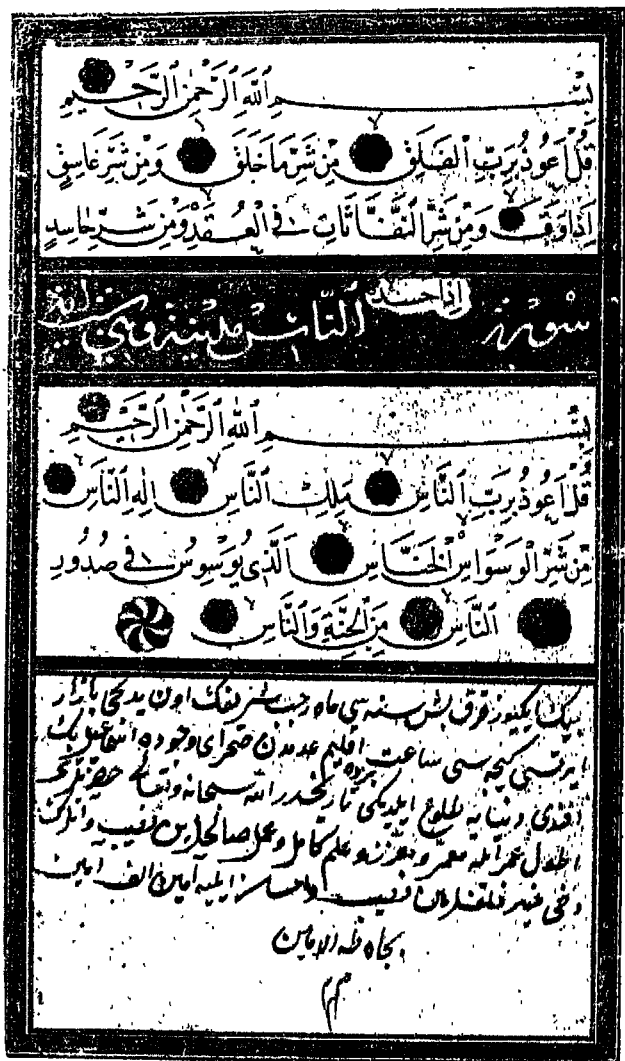 بِسْمِ اللّٰهِ الرَّحْمٰنِ الرَّحِيمِ
قُلْ اَعُوذُ بِرَبِّ الْفَلَقِ مِنْ شَرِّ مَا خَلَقَ وَمِنْ شَرِّ غَاسِقٍ
اِذَا وَقَبَ وَمِنْ شَرِّ النَّفَّاثَاتِ فِي الْعُقَدِ وَمِنْ شَرِّ حَاسِدٍ
اِذَا حَسَدَ
سورة الناس مدنية وهي ست اية
بِسْمِ اللّٰهِ الرَّحْمٰنِ الرَّحِيمِ
قُلْ اَعُوذُ بِرَبِّ النَّاسِ مَلِكِ النَّاسِ اِلٰهِ النَّاسِ
مِنْ شَرِّ الْوَسْوَاسِ الْخَنَّاسِ اَلَّذِي يُوَسْوِسُ فِي صُدُورِ
النَّاسِ مِنَ الْجِنَّةِ وَالنَّاسِ
بيك ايكيوز قرق بش سنه سی ماه رجب شريفنك اون يدنجی بازار
ايرتسی كيجه سی ساعت برده اقليم عدمدن صحرای وجوده اسماعيل بك
افندی دنيايه طلوع ايلديكی تاريخدر الله سبحانه وتعالی حضرتلری
طول عمر ايله معمر و معزز و علم كامل و عمل نصيب
دخی خير نصيب ايليه آمين الف آمين
بجاه طه الامين
م م م